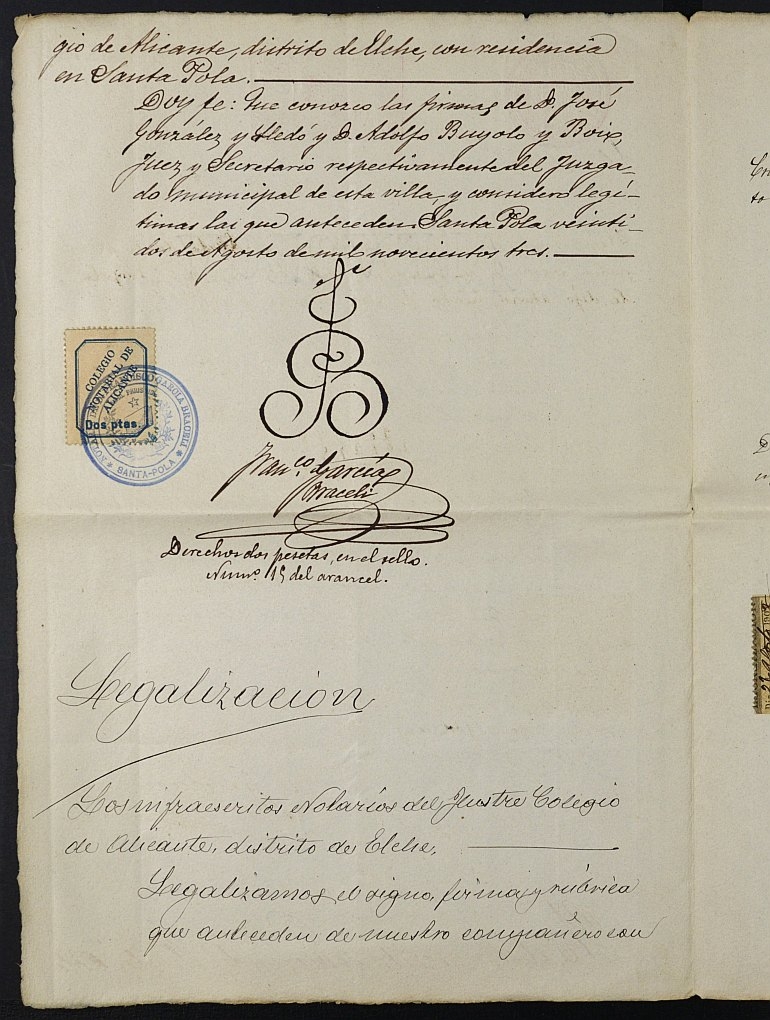 gio de Alicante, distrito de Elche, con residencia
en Santa Pola.
Doy fe: Que conozco las firmas de D. José
González y Lledó y D. Adolfo Buyolo y Boix,
Juez y Secretario respectivamente del Juzga-
do municipal de esta villa, y considero legí-
timas las que anteceden. Santa Pola veinti-
dos de Agosto de mil novecientos tres.
COLEGIO
NOTARIAL DE
ALICANTE
Dos ptas.
SANTA-POLA
Fran.co García
Braceli
Derechos dos pesetas, en el sello.
Núm.o 15 del arancel.
Legalización
Los infraescritos Notarios del Ilustre Colegio
de Alicante, distrito de Elche,
Legalizamos el signo, firma y rúbrica
que anteceden de nuestro compañero con